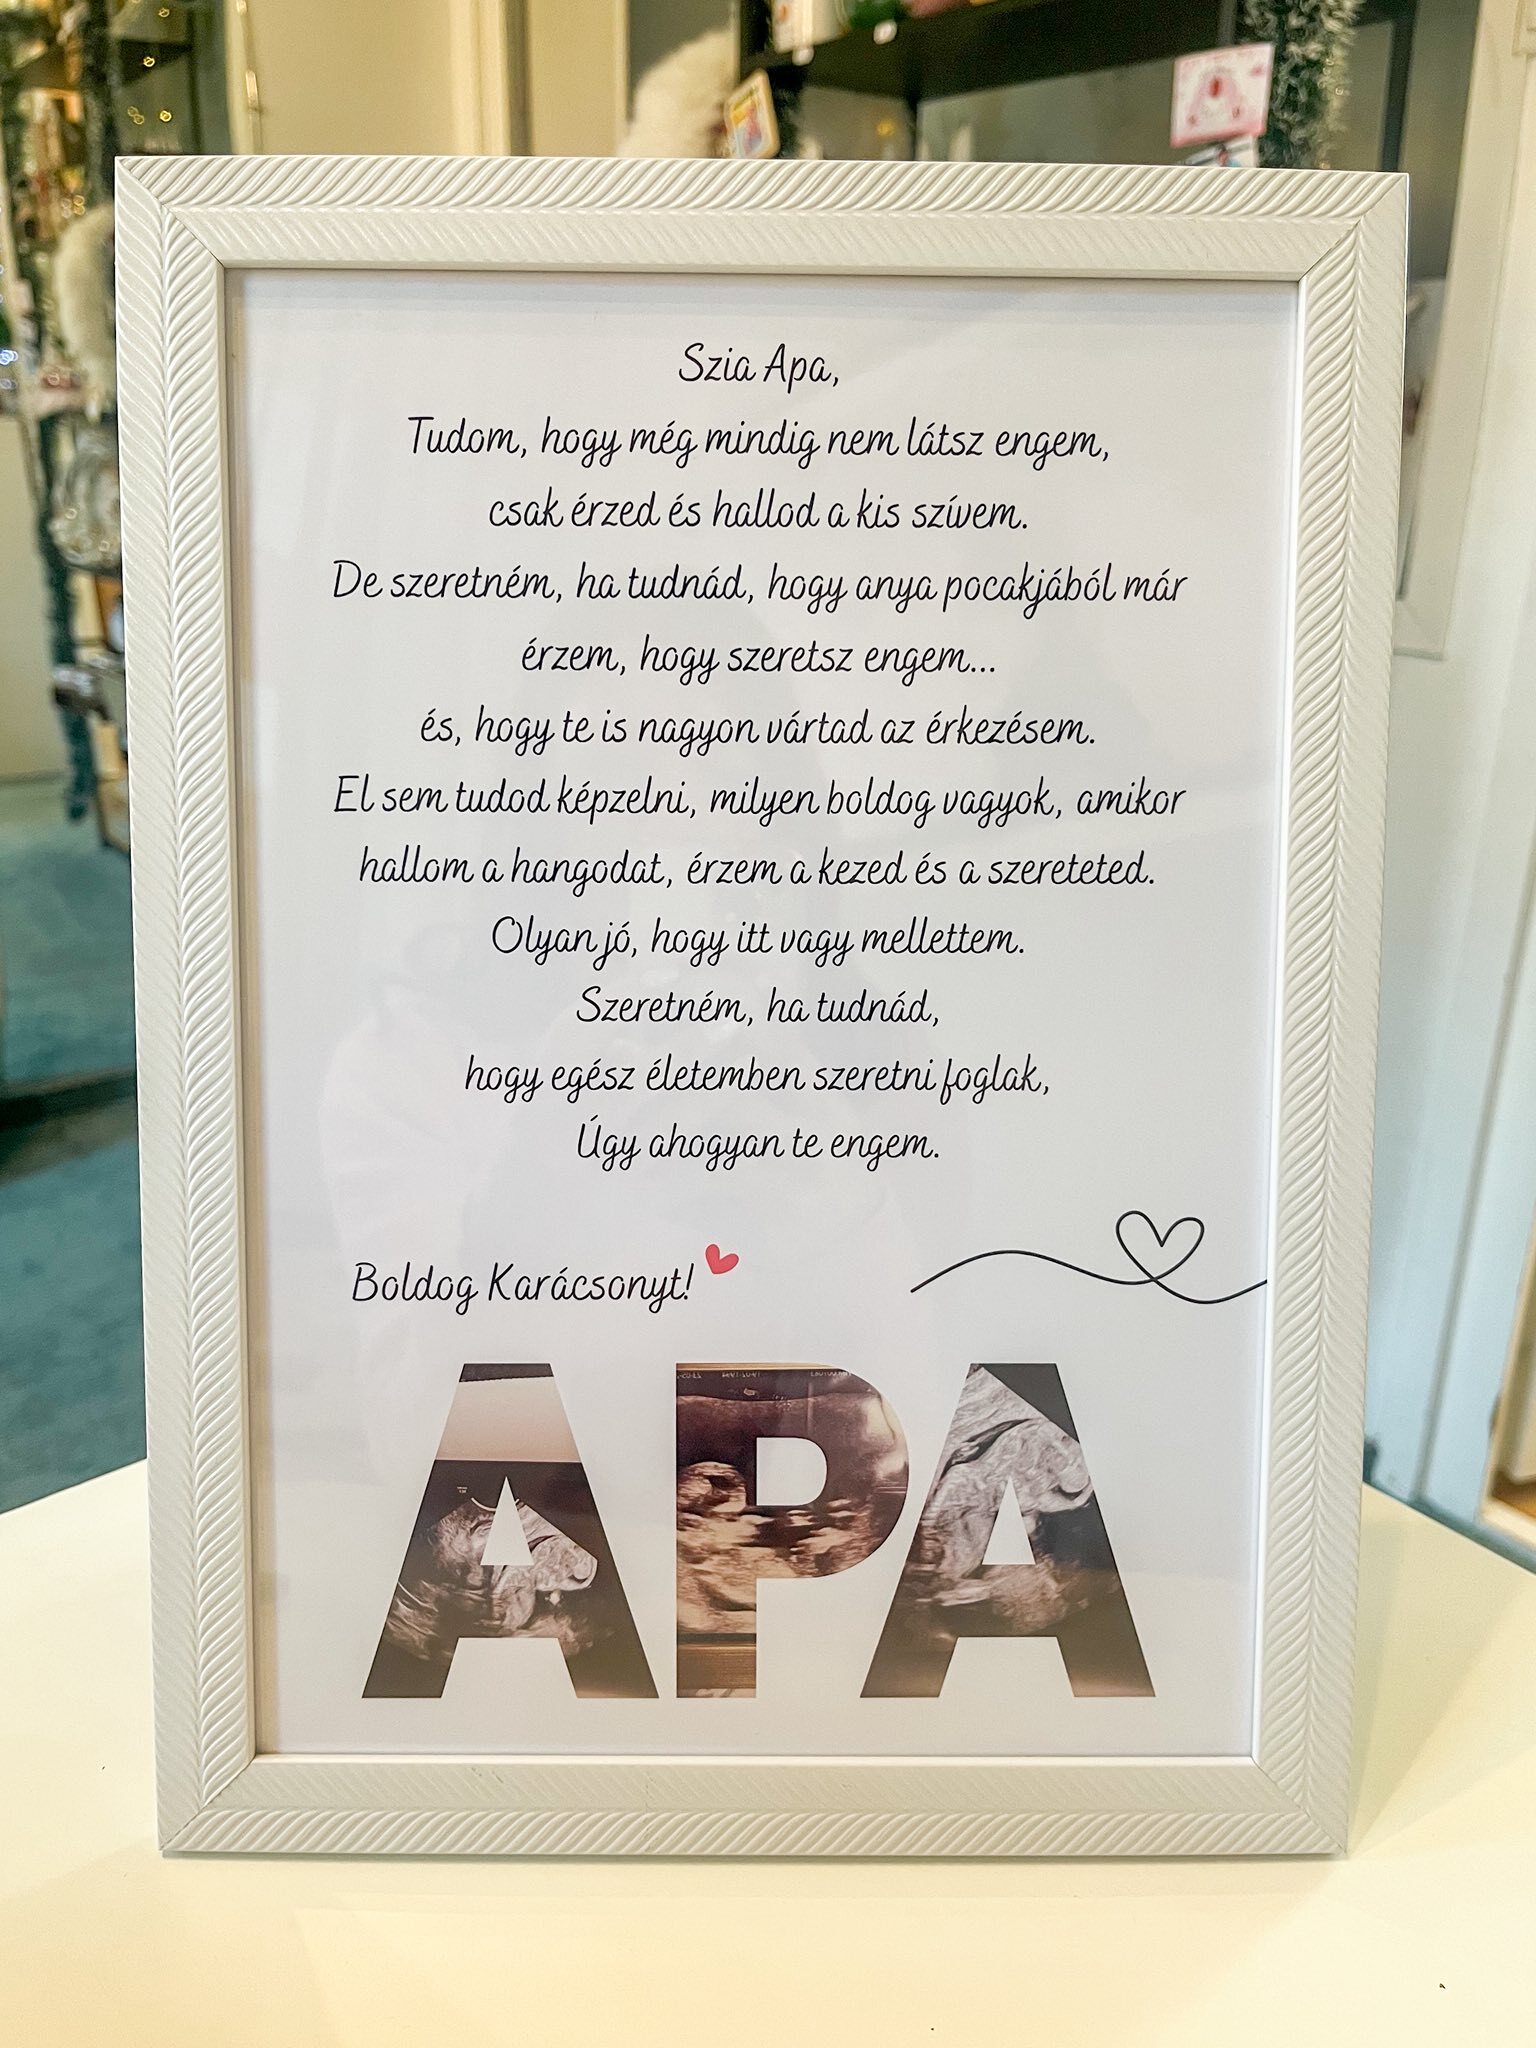 Szia Apa,
Tudom, hogy még mindig nem látsz engem,
csak érzed és hallod a kis szívem.
De szeretném, ha tudnád, hogy anya pocakjából már
érzem, hogy szeretsz engem...
és, hogy te is nagyon vártad az érkezésem.
El sem tudod képzelni, milyen boldog vagyok, amikor
hallom a hangodat, érzem a kezed és a szereteted.
Olyan jó, hogy itt vagy mellettem.
Szeretném, ha tudnád,
hogy egész életemben szeretni foglak,
Úgy ahogyan te engem.
Boldog Karácsonyt!
APA